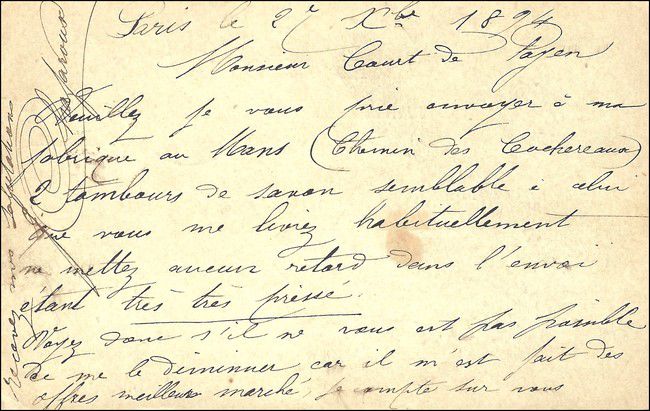 Paris le 27 Xbre 1894
Monsieur Court de Payen
Veuillez je vous prie envoyer à ma
fabrique au Mans (Chemin des Cochereaux)
2 tambours de savon semblable à celui
que vous me livrez habituellement
ne mettez aucun retard dans l'envoi
étant très très pressé.
Voyez donc s'il ne vous est pas possible
de me le diminuer car il m'est fait des
offres meilleur marché, je compte sur vous
Recevez mes salutations